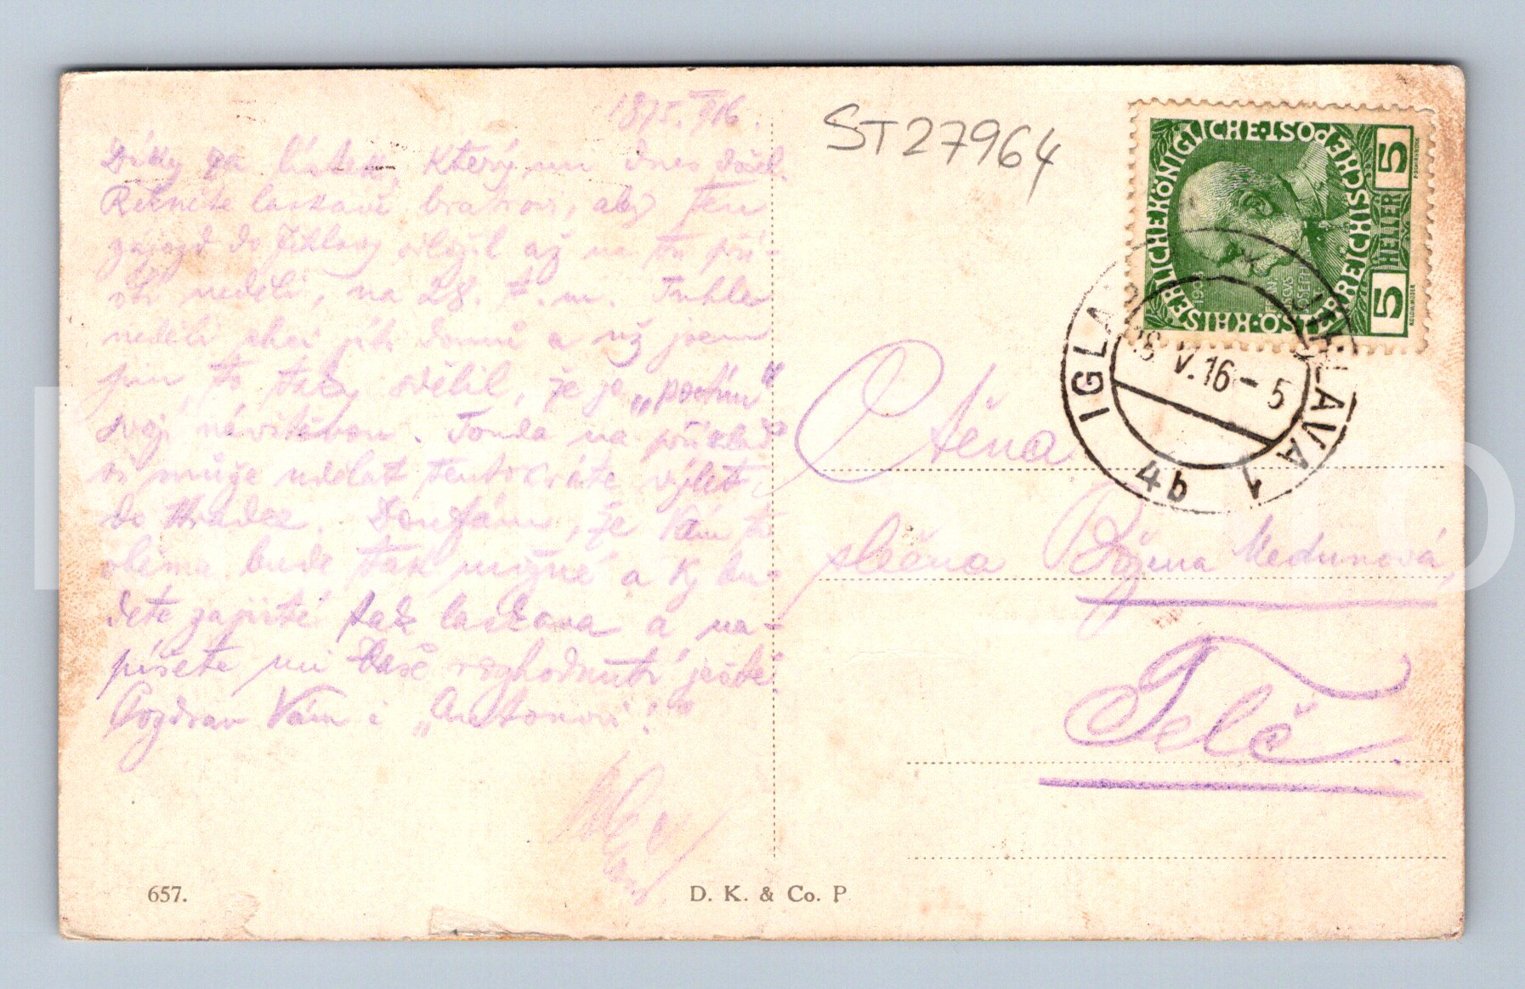 18/5. 16.
Díky za lístek, který mi dnes došel.
Řekněte laskavě bratrovi, aby ten
zájezd do Jihlavy odložil až na tu pří-
ští neděli, na 28. t. m. Tuhle
neděli chci jíti domů a už jsem
jim to taky sdělil, že je „poctím"
svojí návštěvou. Tonda na příklad
si může udělat tentokráte výlet
do Hradce. Doufám, že Vám to
oběma bude tak možné a Vy bu-
dete zajisté tak laskava a na-
píšete mi Vaše rozhodnutí ještě.
Pozdrav Vám i „Antonovi!"
ST27964
KAISERLICHE KÖNIGLICHE POST
ÖSTERREICHISCHE
5 HELLER 5
IGLAU JIHLAVA 1
18 V. 16 - 5
4b
Ctěná
slečna Božena Medunová,
Telč.
657.
D. K. & Co. P